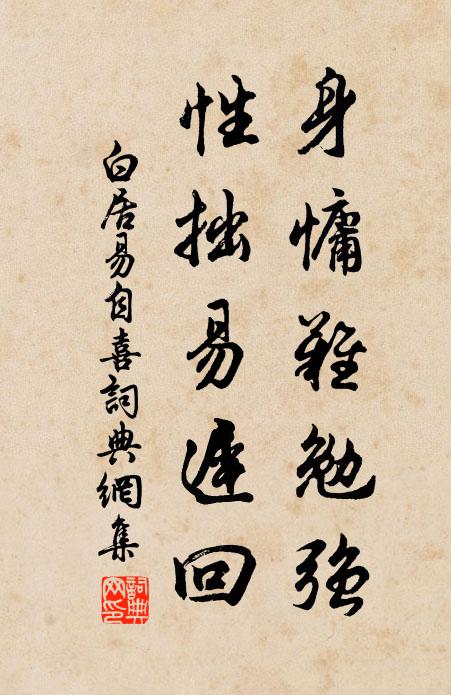 身慵難勉強
性拙易遲回
白居易自喜詞典網集
詞典網印